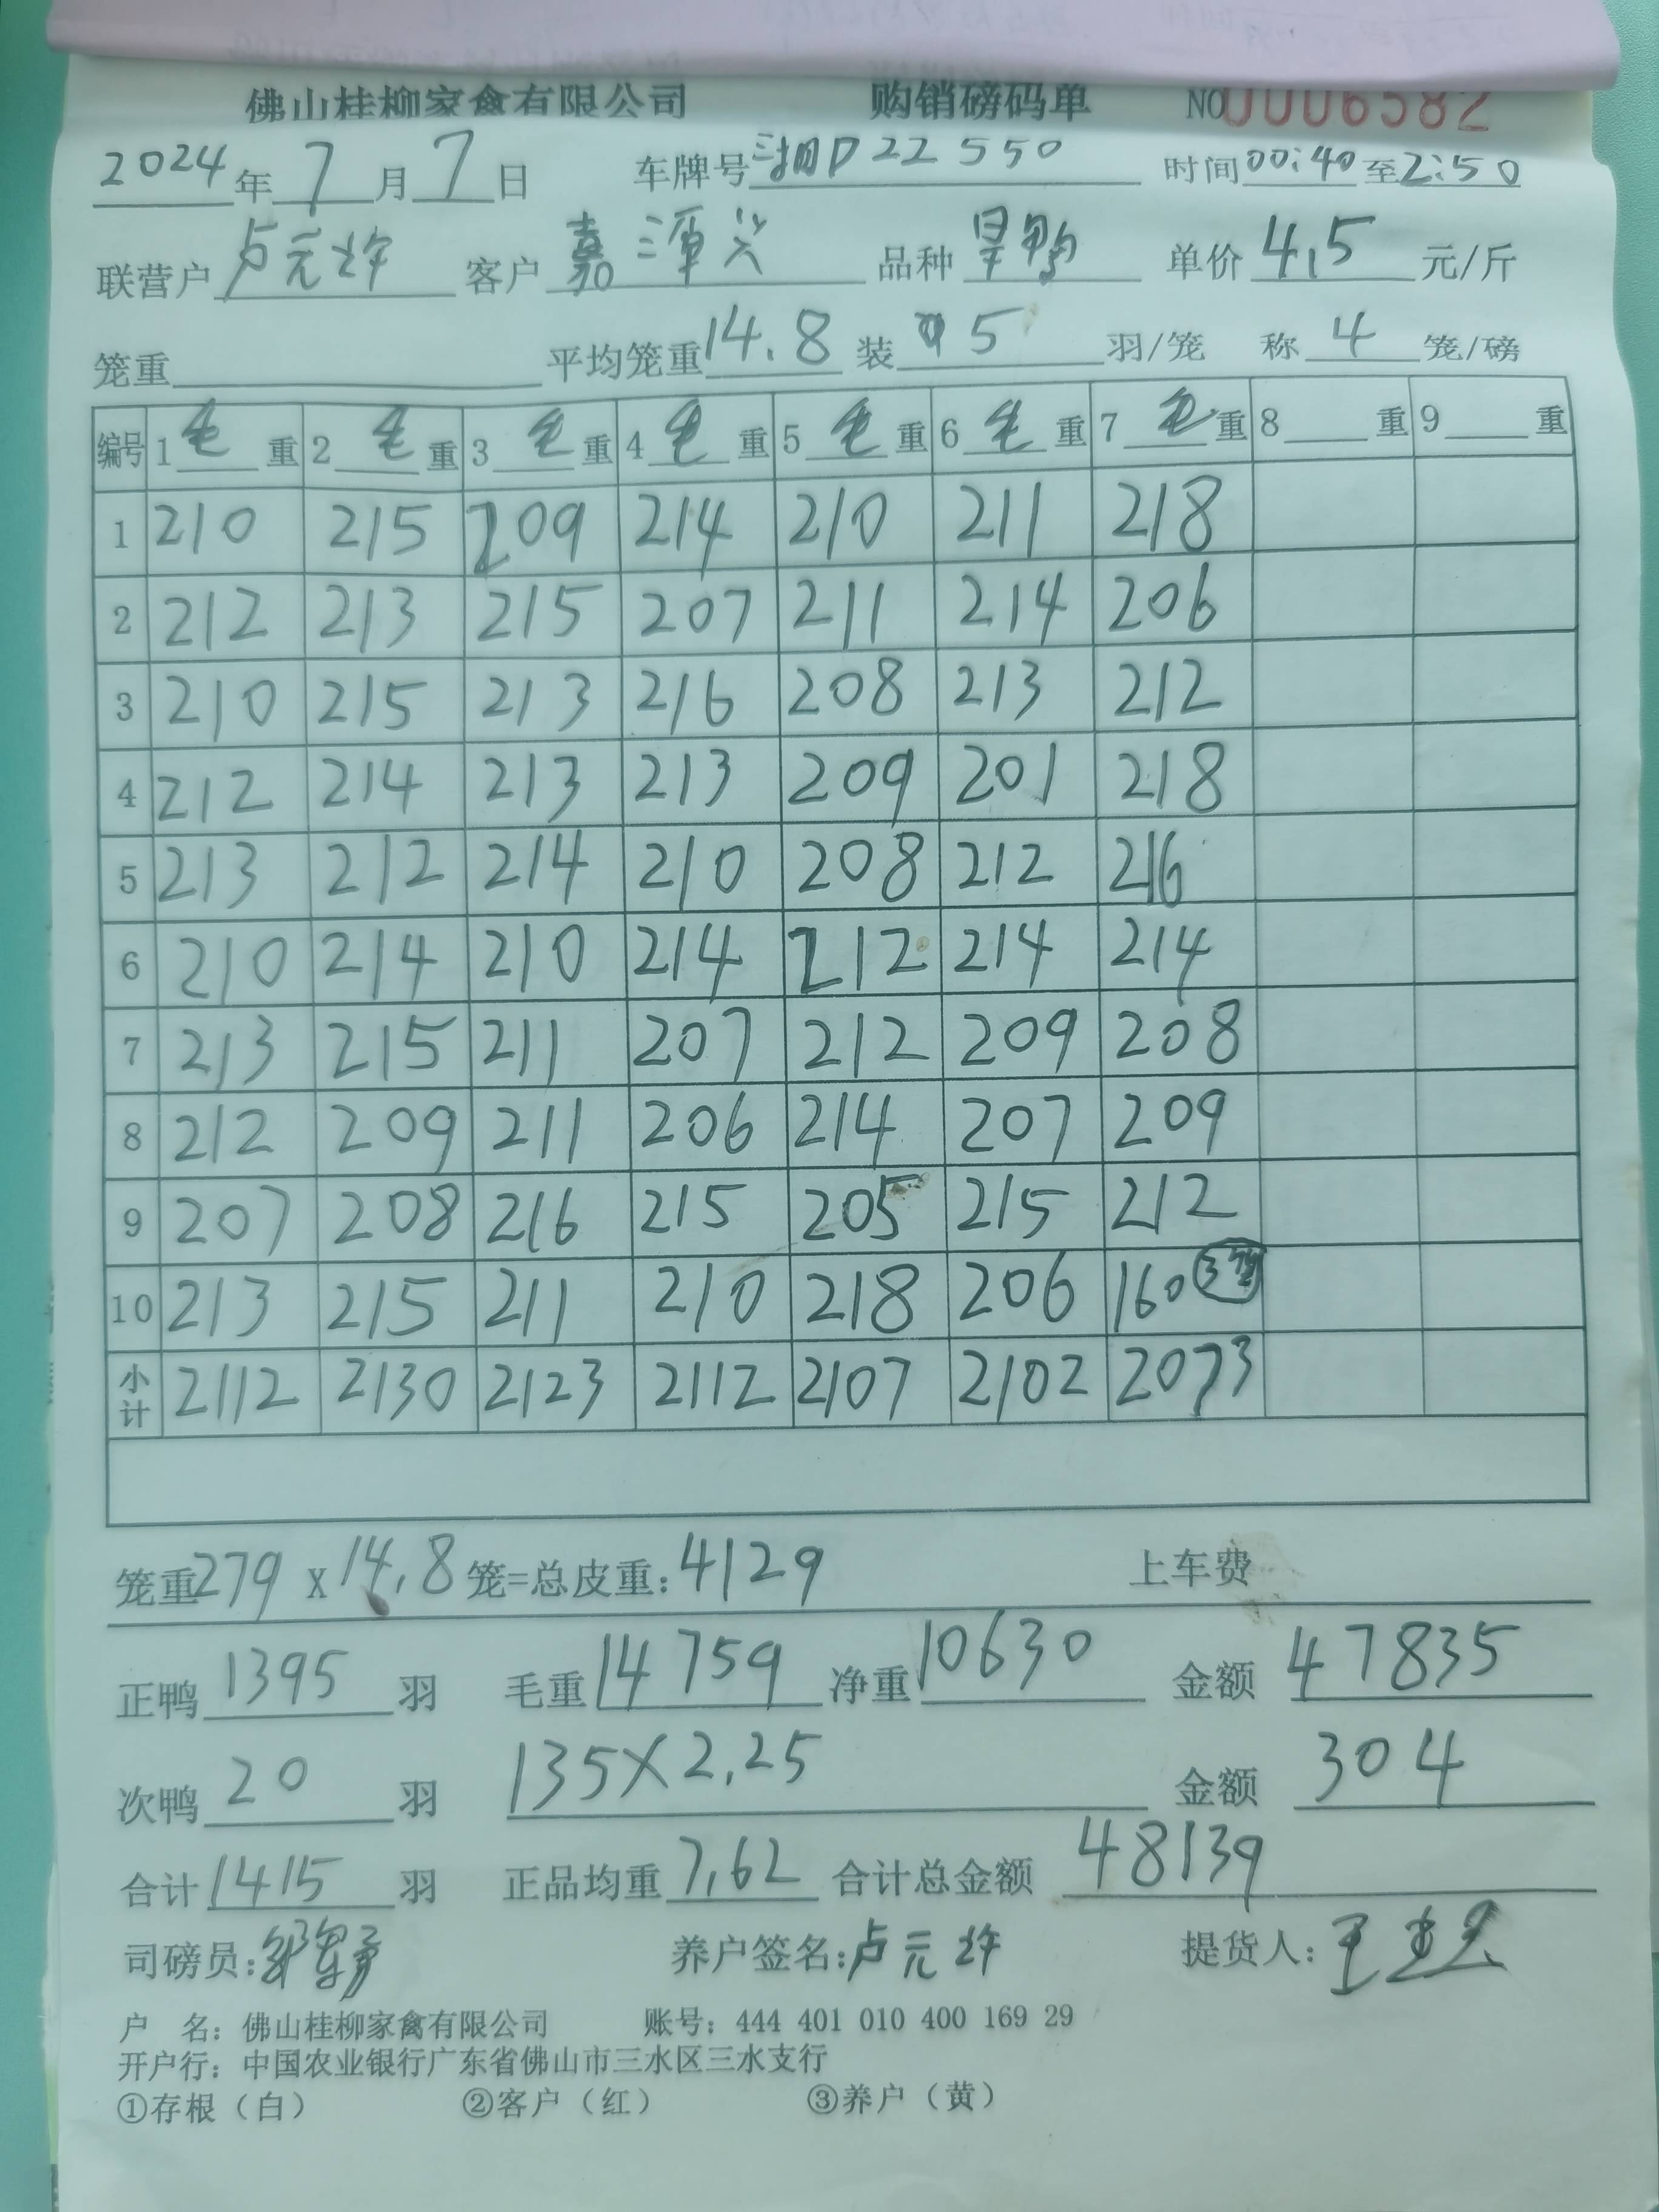 佛山桂柳家禽有限公司 购销磅码单 NO 0006582
2024年7月7日 车牌号 湘D22550 时间00:40至2:50
联营户 卢元 客户 嘉 品种 单价4.5元/斤
笼重 平均笼重14.8 装 5 羽/笼 称 4 笼/磅
编号 1毛重 2毛重 3毛重 4毛重 5毛重 6毛重 7毛重 8 重 9 重
1 210 215 209 214 210 211 218
2 212 213 215 207 211 214 206
3 210 215 213 216 208 213 212
4 212 214 213 213 209 201 218
5 213 212 214 210 208 212 216
6 210 214 210 214 212 214 214
7 213 215 211 207 212 209 208
8 212 209 211 206 214 207 209
9 207 208 216 215 205 215 212
10 213 215 211 210 218 206 160 3笼
小计 2112 2130 2123 2112 2107 2102 2073
笼重279 X 14.8笼=总皮重:4129 上车费
正鸭 1395 羽 毛重14759 净重10630 金额 47835
次鸭 20 羽 135×2.25 金额 304
合计1415 羽 正品均重 7.62 合计总金额 48139
司磅员: 养户签名:卢元 提货人:王
户 名:佛山桂柳家禽有限公司 账号:444 401 010 400 169 29
开户行:中国农业银行广东省佛山市三水区三水支行
①存根(白) ②客户(红) ③养户(黄)